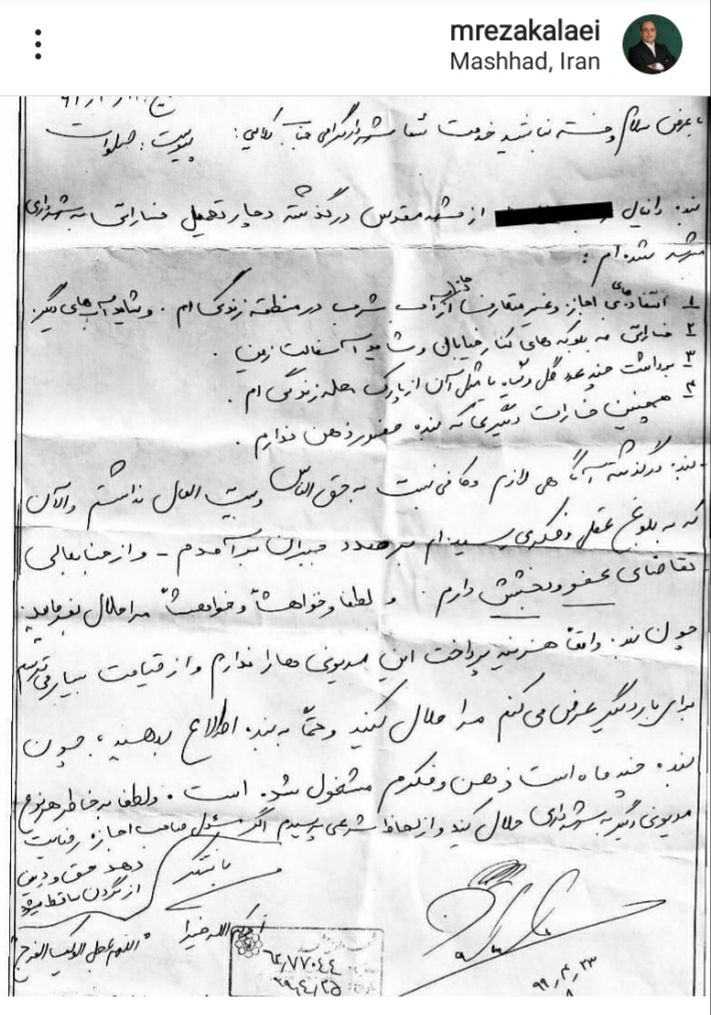 mrezakalaei
Mashhad, Iran
با عرض سلام و خسته نباشید خدمت شما شهردار گرامی جناب کلایی:
پیوست: صلوات
بنده دانیال از مشهد مقدس در گذشته دچار تحمیل خساراتی به شهرداری
شده ام:
۱ استفاده های غیر متعارف از آب شرب در منطقه زندگی ام. و شاید آب های دیگر.
۲ خساراتی به بلوک های کنار خیابان و شاید آسفالت زمین.
۳ برداشت چند عدد گل و گیاه یا مثل آن از پارک محله زندگی ام.
۴ همچنین خسارات دیگری که بنده حضور ذهن ندارم.
بنده در گذشته آگاهی لازم و کافی نسبت به حق الناس و بیت المال نداشتم والآن
که به بلوغ عقلی و فکری رسیده ام در صدد جبران برآمدم - و از جنابعالی
تقاضای عفو و بخشش دارم. و لطفا و خواهشاً و خواهشاً مرا حلال بفرمایید
چون بنده واقعاً هزینه پرداخت این مدیونی ها را ندارم و از قیامت بسیار می ترسم
برای بار دیگر عرض می کنم مرا حلال کنید و حتماً به بنده اطلاع بدهید، چون
بنده چند ماه است ذهن و فکرم مشغول شده است. و لطفا به خاطر هر نوع
مدیونی دیگر به شهرداری حلال کنید و از لحاظ شرعی پرسیدم اگر مسئول صاحب اجازه رضایت
دهد حق و دین
از گردن ساقط میشود
با تشکر
اجرکم الله خیرا
"اللهم عجل لولیک الفرج"
۶۲/۷۷۰۴۴
۹۹/۴/۲۵
۹۹/۴/۲۳